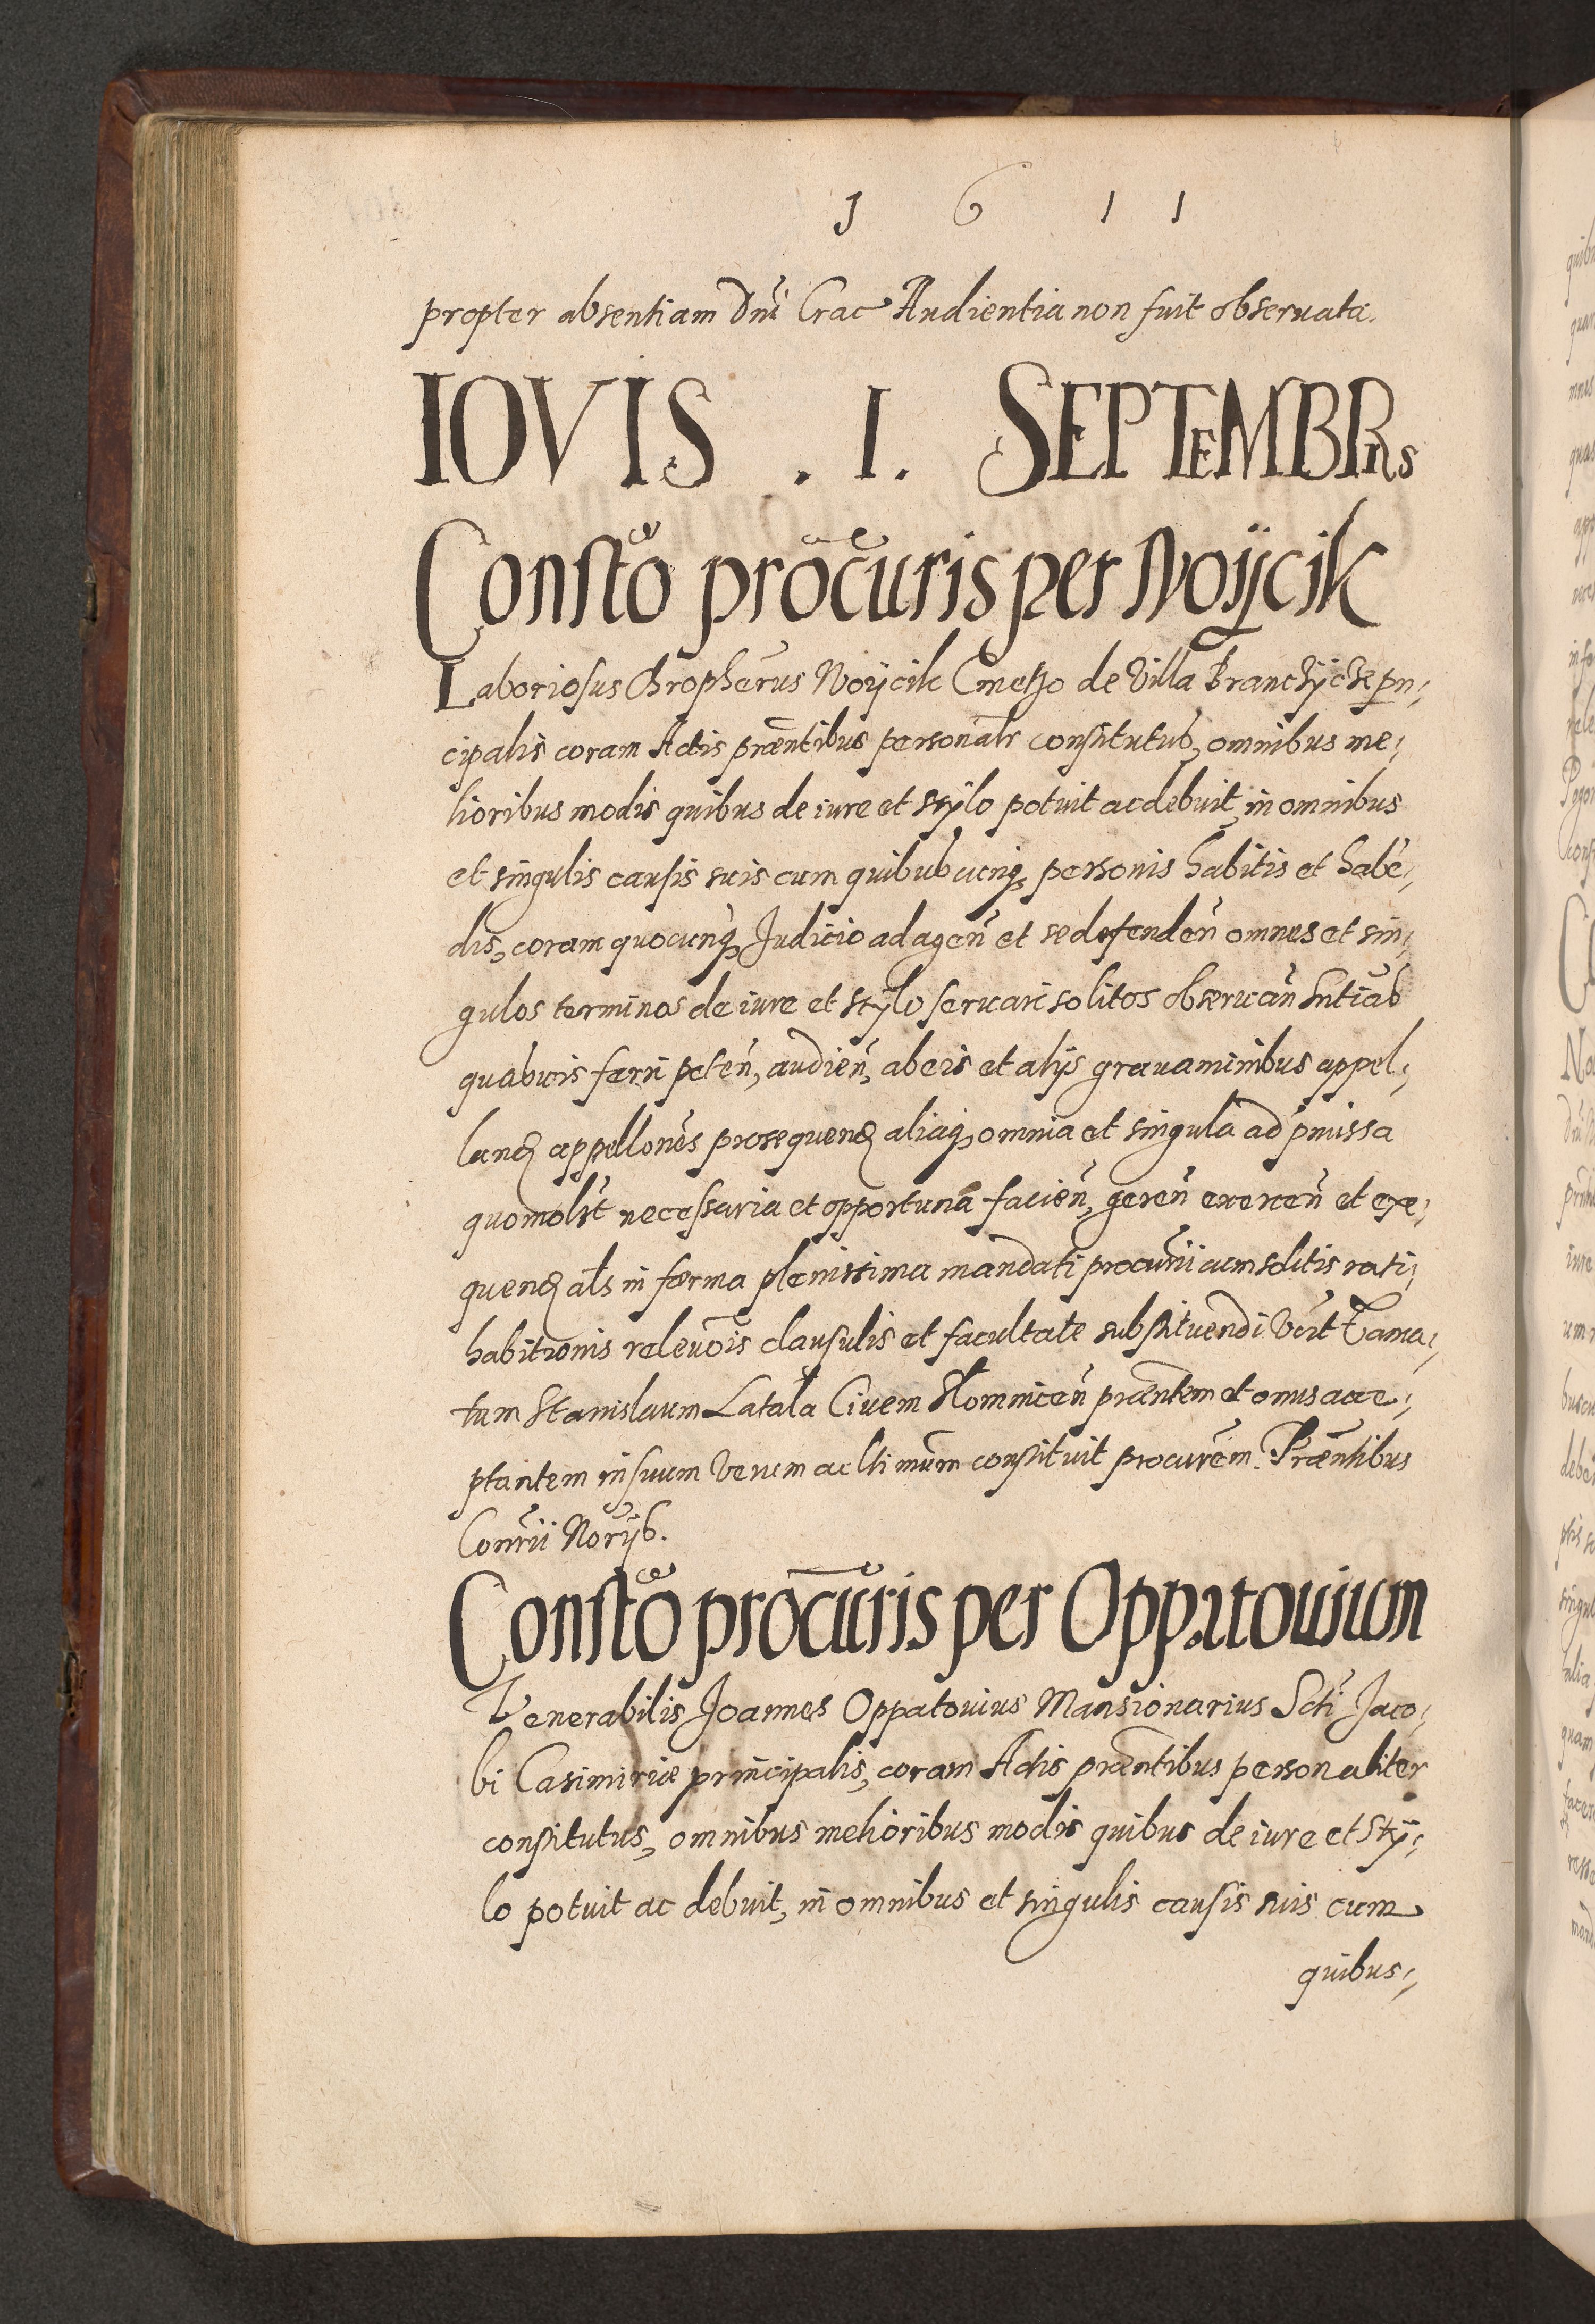 1 6 1 1
propter absentiam Dnĩ Crac Audientia non fuit obseruata.
IOVIS . I . SEPTEMBRIs
Constõ procũris per Woijcik
Laboriosus Chrophерus Woijcik Cmetho de Villa prin,
cipalis coram Actis prãentibus personalr constitutus, omnibus me,
lioribus modis quibus de iure et stÿlo potuit ac debuit, in omnibus
et singulis causis suis cum quibuscunq personis habitis et habẽ,
dis, coram quocunq Judicio ad agen̄ et se defenden̄ omnes et sin,
gulos terminos de iure et stÿlo seruari solitos obseruan̄ sntias
quasuis ferri peten̄, audien̄, ab eis et alijs grauaminibus appel,
land appellones prosequend aliaq omnia et singula ad pmissa
quomolt necessaria et opportuna facien̄, geren̄ exercen̄ et exe,
quend als in forma plenissima mandati procurii cum solitis rati,
habitionis releuõis clausulis et facultate substituendi Vert Fama,
tum Stanislaum Latala Ciuem Slomnicen̄ prãentem et onus acce,
ptantem in suum verum ac ltimum constituit procurem. Prãentibus
Conrii Norijs.
Constõ procũris per Oppatouium
Venerabilis Joannes Oppatouius Mansionarius Scti Jaco,
bi Casimiriæ principalis, coram Actis prãentibus personaliter
constitutus, omnibus melioribus modis quibus de iure et stÿ,
lo potuit ac debuit, in omnibus et singulis causis suis cum
quibus,